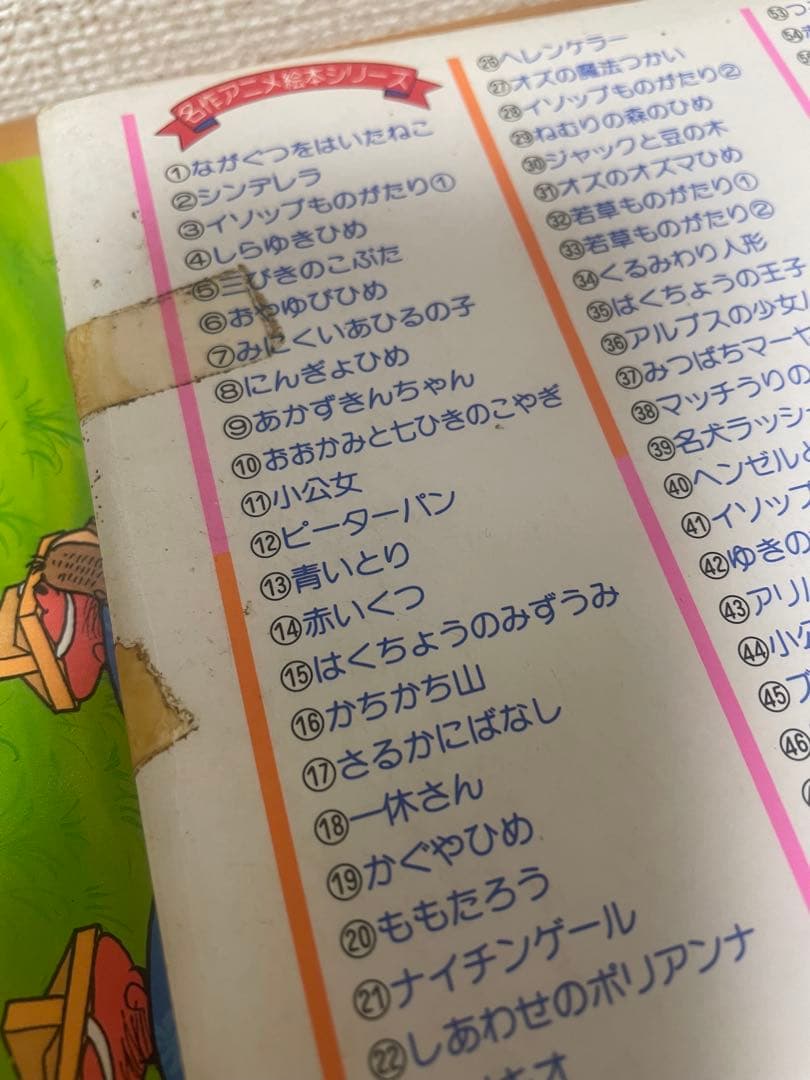 名作アニメ絵本シリーズ
①ながぐつをはいたねこ
②シンデレラ
③イソップものがたり①
④しらゆきひめ
⑤三びきのこぶた
⑥おやゆびひめ
⑦みにくいあひるの子
⑧にんぎょひめ
⑨あかずきんちゃん
⑩おおかみと七ひきのこやぎ
⑪小公女
⑫ピーターパン
⑬青いとり
⑭赤いくつ
⑮はくちょうのみずうみ
⑯かちかち山
⑰さるかにばなし
⑱一休さん
⑲かぐやひめ
⑳ももたろう
㉑ナイチンゲール
㉒しあわせのポリアンナ
㉖ヘレンケラー
㉗オズの魔法つかい
㉘イソップものがたり②
㉙ねむりの森のひめ
㉚ジャックと豆の木
㉛オズのオズマひめ
㉜若草ものがたり①
㉝若草ものがたり②
㉞くるみわり人形
㉟はくちょうの王子
㊱アルプスの少女
㊲みつばちマーヤ
㊳マッチうりの
㊴名犬ラッシ
㊵ヘンゼルと
㊶イソップ
㊷ゆきの
㊸アリ
㊹小公
㊺ブ
㊻
㊾つ